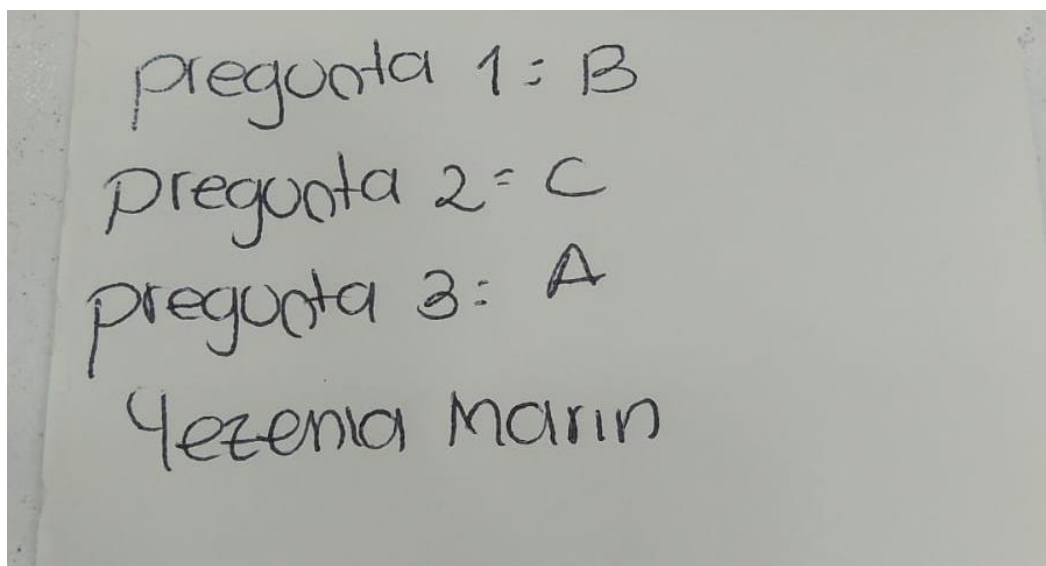 pregunta 1: B
pregunta 2: C
pregunta 3: A
Yezenia Marin